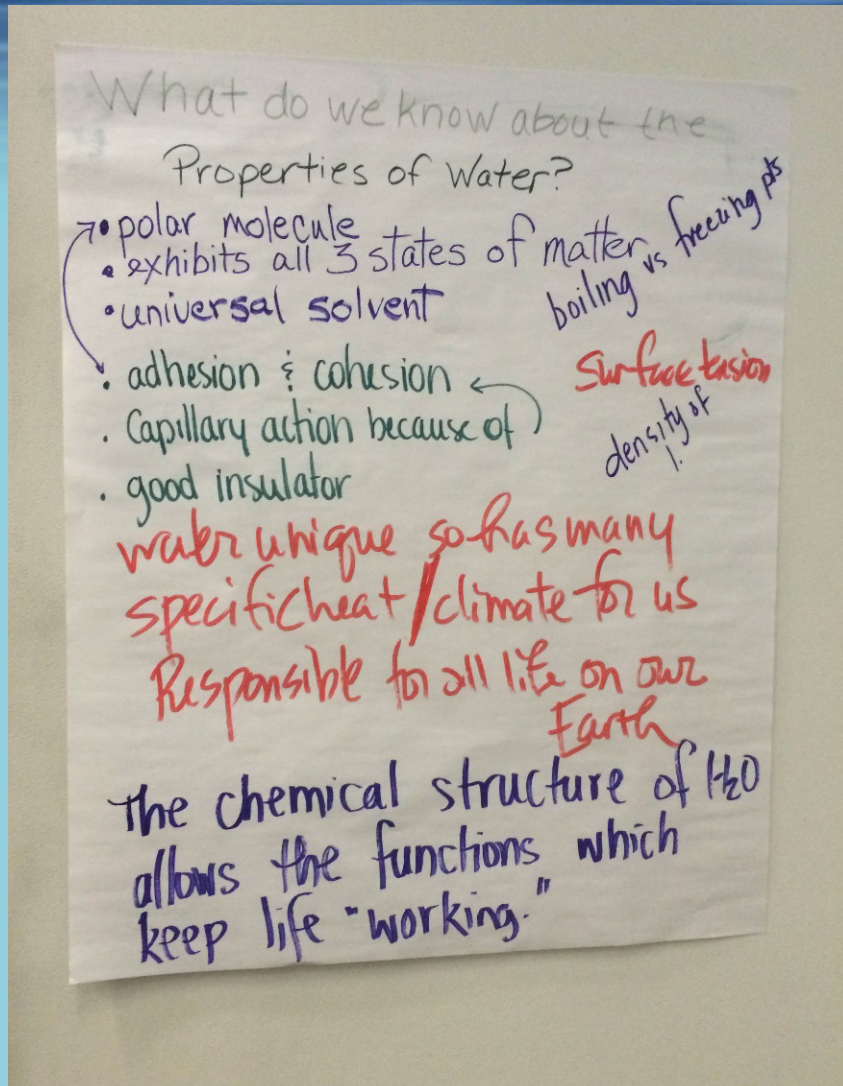 What do we know about the
Properties of Water?
• polar molecule
• exhibits all 3 states of matter
boiling vs freezing pts
• universal solvent
• adhesion & cohesion
Surface tension
• Capillary action because of
density of
• good insulator
water unique so has many
specific heat / climate for us
Responsible for all life on our
Earth
The chemical structure of H₂O
allows the functions which
keep life "working."